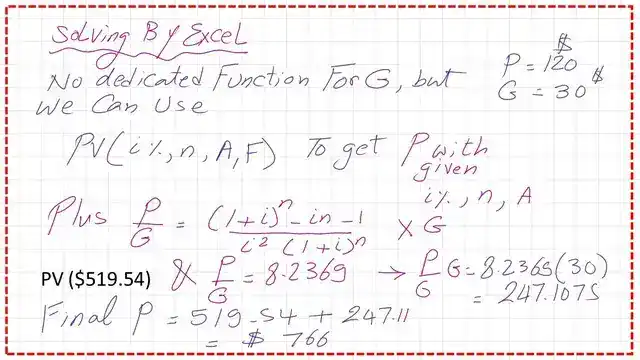 Solving By Excel
No dedicated Function For G, but
We Can Use
P = 120 $
G = 30 $
PV(i%, n, A, F) To get P with
given
i%, n, A
Plus P/G = ((1+i)^n - in - 1)/(i^2 (1+i)^n) X G
PV ($519.54) & P/G = 8.2369 → P/G G = 8.2369(30)
= 247.1075
Final P = 519.54 + 247.11
= $ 766